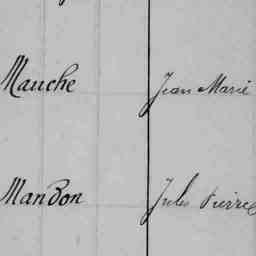 Mauche Jean Marie
Mandon Jules Pierre